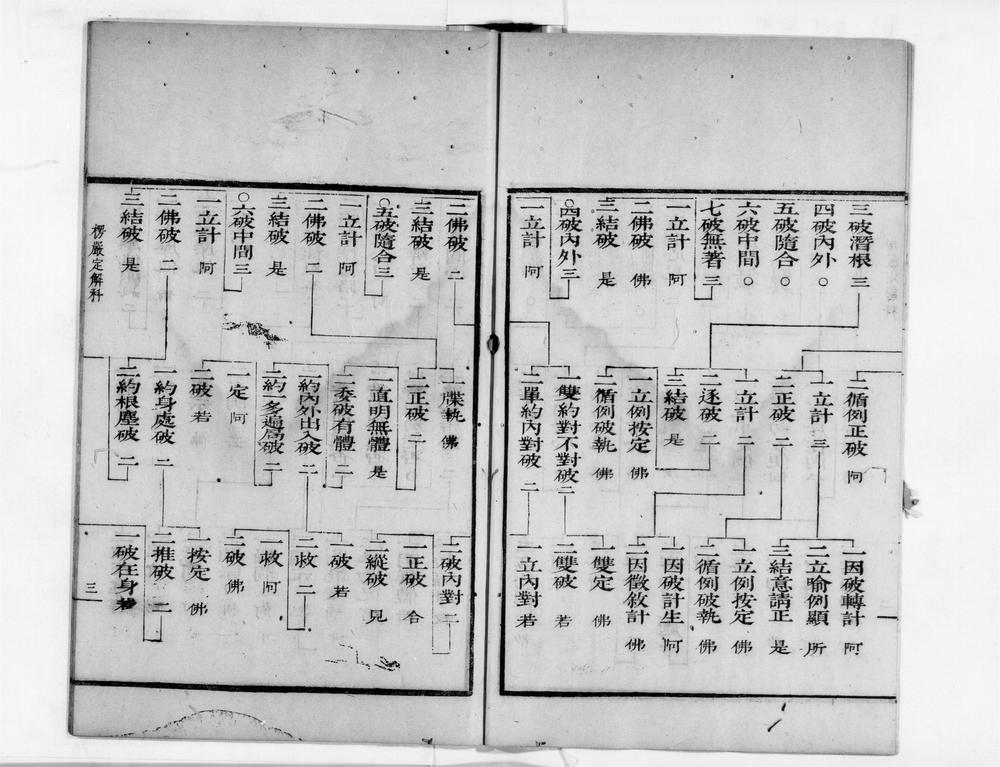 三破潛根 三
四破內外 ○
五破隨合 ○
六破中間 ○
七破無著 三
一立計 阿
二佛破 佛
三結破 是
○四破內外 三
一立計 阿
二循例正破 阿
一立計 三
二正破 二
一立計 二
二逐破 二
三結破 是
一立例按定 佛
二循例破執 佛
一雙約對不對破 二
二單約內對破 二
一因破轉計 阿
二立喻例顯 所
三結意請正 是
一立例按定 佛
二循例破執 佛
一因破計生 阿
二因徵敘計 佛
一雙定 佛
二雙破 若
一立內對 若
二佛破 二
三結破 是
○五破隨合 三
一立計 阿
二佛破 二
三結破 是
○六破中間 三
一立計 阿
二佛破 二
三結破 是
一牒執 佛
二正破 二
一直明無體 是
二委破有體 二
一約內外出入破 二
二約一多遍局破 二
一定 阿
二破 若
一約身處破 二
二約根塵破 二
二破內對 二
一正破 合
二縱破 見
一破 若
二救 二
一救 阿
二破 佛
一按定 佛
二推破 二
一破在身 若
楞嚴定解科
三